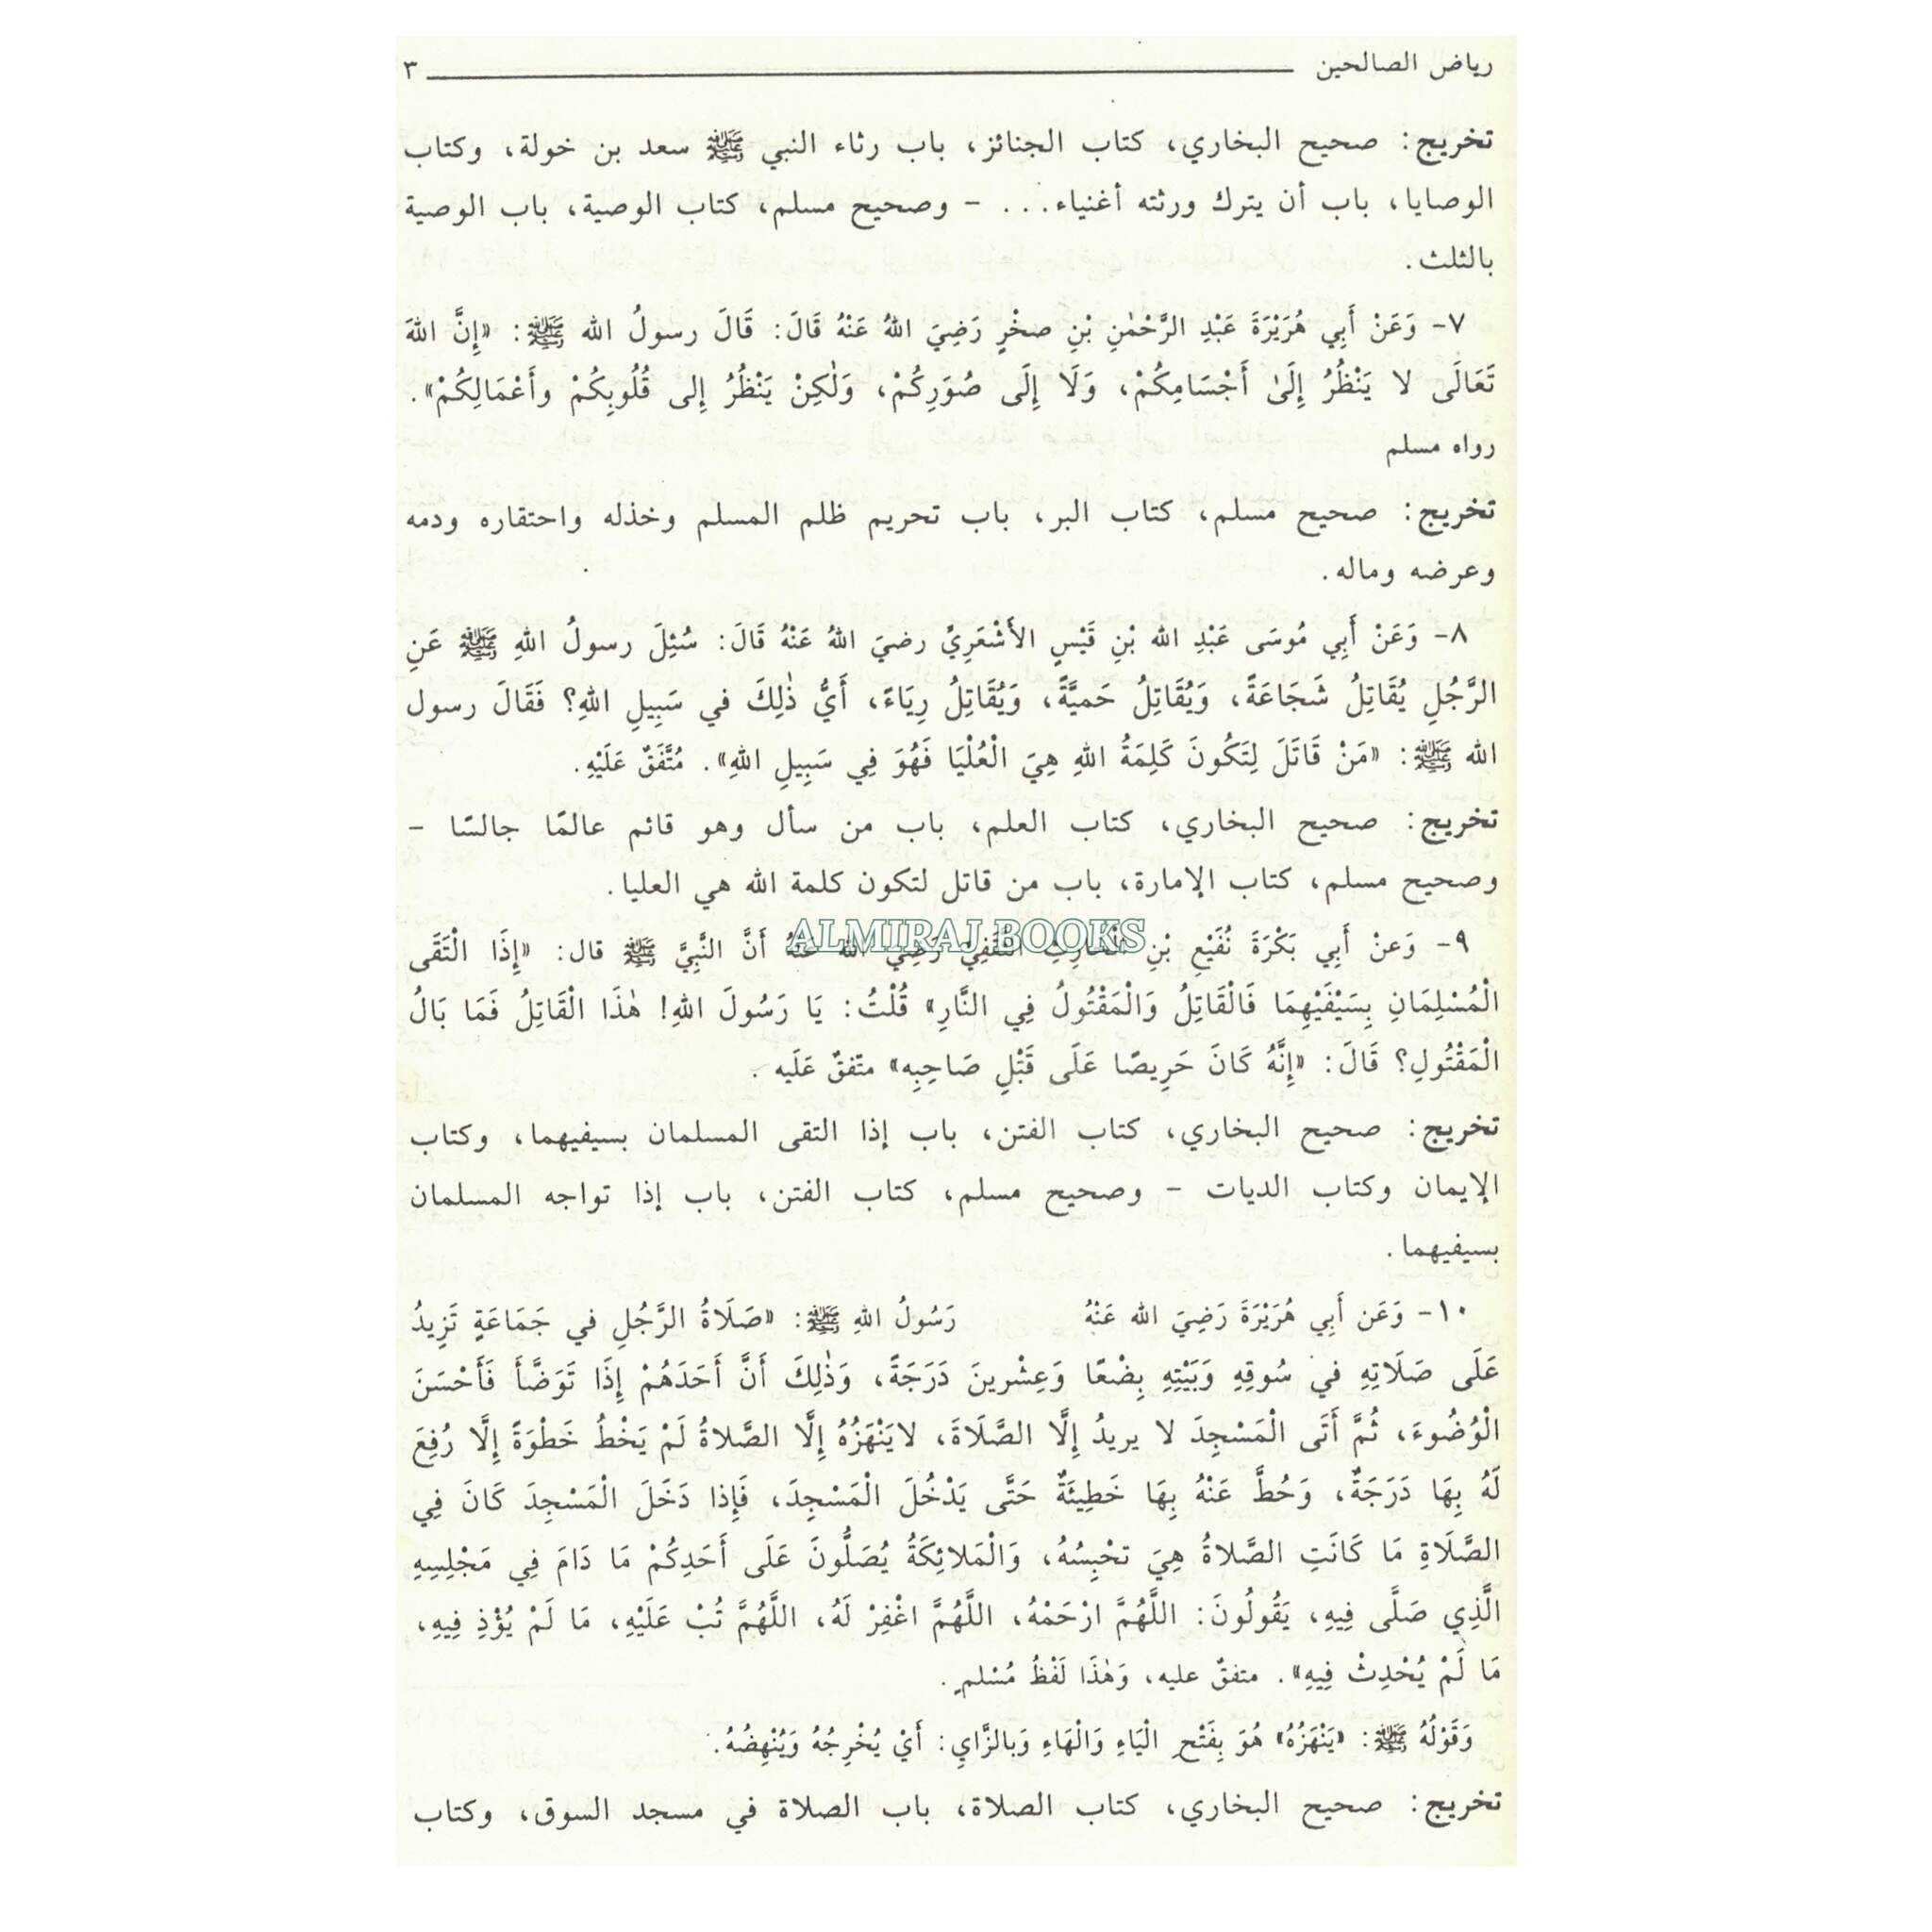 رياض الصالحين ٣
تخريج: صحيح البخاري، كتاب الجنائز، باب رثاء النبي ﷺ سعد بن خولة، وكتاب
الوصايا، باب أن يترك ورثته أغنياء... - وصحيح مسلم، كتاب الوصية، باب الوصية
بالثلث.
٧- وَعَنْ أَبِي هُرَيْرَةَ عَبْدِ الرَّحْمٰنِ بْنِ صخْرٍ رَضِيَ اللهُ عَنْهُ قَالَ: قَالَ رسولُ الله ﷺ: «إِنَّ اللهَ
تَعَالَى لا يَنْظُرُ إِلَىٰ أَجْسَامِكُمْ، وَلَا إِلَى صُوَرِكُمْ، وَلٰكِنْ يَنْظُرُ إِلى قُلُوبِكُمْ وأَعْمَالِكُمْ».
رواه مسلم
تخريج: صحيح مسلم، كتاب البر، باب تحريم ظلم المسلم وخذله واحتقاره ودمه
وعرضه وماله.
٨- وَعَنْ أَبِي مُوسَى عَبْدِ الله بْنِ قَيْسٍ الأَشْعَرِيِّ رضيَ اللهُ عَنْهُ قَالَ: سُئِلَ رسولُ اللهِ ﷺ عَنِ
الرَّجُلِ يُقَاتِلُ شَجَاعَةً، وَيُقَاتِلُ حَميَّةً، وَيُقَاتِلُ رِيَاءً، أَيُّ ذٰلِكَ في سَبِيلِ اللهِ؟ فَقَالَ رسول
الله ﷺ: «مَنْ قَاتَلَ لِتَكُونَ كَلِمَةُ اللهِ هِيَ الْعُلْيَا فَهُوَ فِي سَبِيلِ اللهِ». مُتَّفَقٌ عَلَيْهِ.
تخريج: صحيح البخاري، كتاب العلم، باب من سأل وهو قائم عالمًا جالسًا -
وصحيح مسلم، كتاب الإمارة، باب من قاتل لتكون كلمة الله هي العليا.
ALMIRAJ BOOKS
٩- وَعنْ أَبِي بَكْرَةَ نُفَيْعِ بْنِ الْحَارِثِ الثَّقَفِيِّ رَضِيَ اللهُ عَنْهُ أَنَّ النَّبِيَّ ﷺ قال: «إِذَا الْتَقَى
الْمُسْلِمَانِ بِسَيْفَيْهِمَا فَالْقَاتِلُ وَالْمَقْتُولُ فِي النَّارِ» قُلْتُ: يَا رَسُولَ اللهِ! هٰذَا الْقَاتِلُ فَمَا بَالُ
الْمَقْتُولِ؟ قَالَ: «إِنَّهُ كَانَ حَرِيصًا عَلَى قَتْلِ صَاحِبِه» متّفقٌ عَلَيه.
تخريج: صحيح البخاري، كتاب الفتن، باب إذا التقى المسلمان بسيفيهما، وكتاب
الإيمان وكتاب الديات - وصحيح مسلم، كتاب الفتن، باب إذا تواجه المسلمان
بسيفيهما.
١٠- وَعَن أَبِي هُرَيْرَةَ رَضِيَ الله عَنْهُ رَسُولُ اللهِ ﷺ: «صَلَاةُ الرَّجُلِ في جَمَاعَةٍ تَزِيدُ
عَلَى صَلَاتِهِ في سُوقِهِ وَبَيْتِهِ بِضْعًا وَعِشْرينَ دَرَجَةً، وَذٰلِكَ أَنَّ أَحَدَهُمْ إِذَا تَوَضَّأَ فَأَحْسَنَ
الْوُضُوءَ، ثُمَّ أَتَى الْمَسْجِدَ لا يريدُ إِلَّا الصَّلَاةَ، لايَنْهَزُهُ إِلَّا الصَّلاةُ لَمْ يَخْطُ خَطْوَةً إِلَّا رُفِعَ
لَهُ بِهَا دَرَجَةٌ، وَحُطَّ عَنْهُ بِهَا خَطِيئَةٌ حَتَّى يَدْخُلَ الْمَسْجِدَ، فَإِذا دَخَلَ الْمَسْجِدَ كَانَ فِي
الصَّلَاةِ مَا كَانَتِ الصَّلاةُ هِيَ تحْبِسُهُ، وَالْمَلائِكَةُ يُصَلُّونَ عَلَى أَحَدِكُمْ مَا دَامَ فِي مَجْلِسِهِ
الَّذِي صَلَّى فِيهِ، يَقُولُونَ: اللَّهُمَّ ارْحَمْهُ، اللَّهُمَّ اغْفِرْ لَهُ، اللَّهُمَّ تُبْ عَلَيْهِ، مَا لَمْ يُؤْذِ فِيهِ،
مَا لَمْ يُحْدِثْ فِيهِ». متفقٌ عليه، وَهٰذَا لَفْظُ مُسْلمٍ.
وَقَوْلُهُ ﷺ: «يَنْهَزُهُ» هُوَ بِفَتْحِ الْيَاءِ وَالْهَاءِ وَبالزَّايِ: أَيْ يُخْرِجُهُ وَيُنْهِضُهُ.
تخريج: صحيح البخاري، كتاب الصلاة، باب الصلاة في مسجد السوق، وكتاب